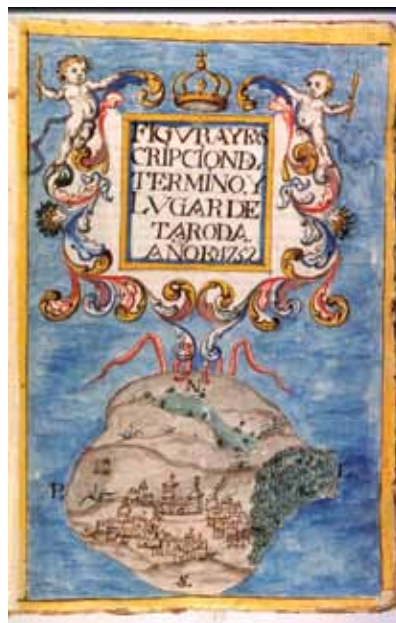 FIGVRA Y DES
CRIPCION D.
TERMINO, Y
LVGAR DE
TARODA
AÑO DE 1752
N.
P.
L.
S.